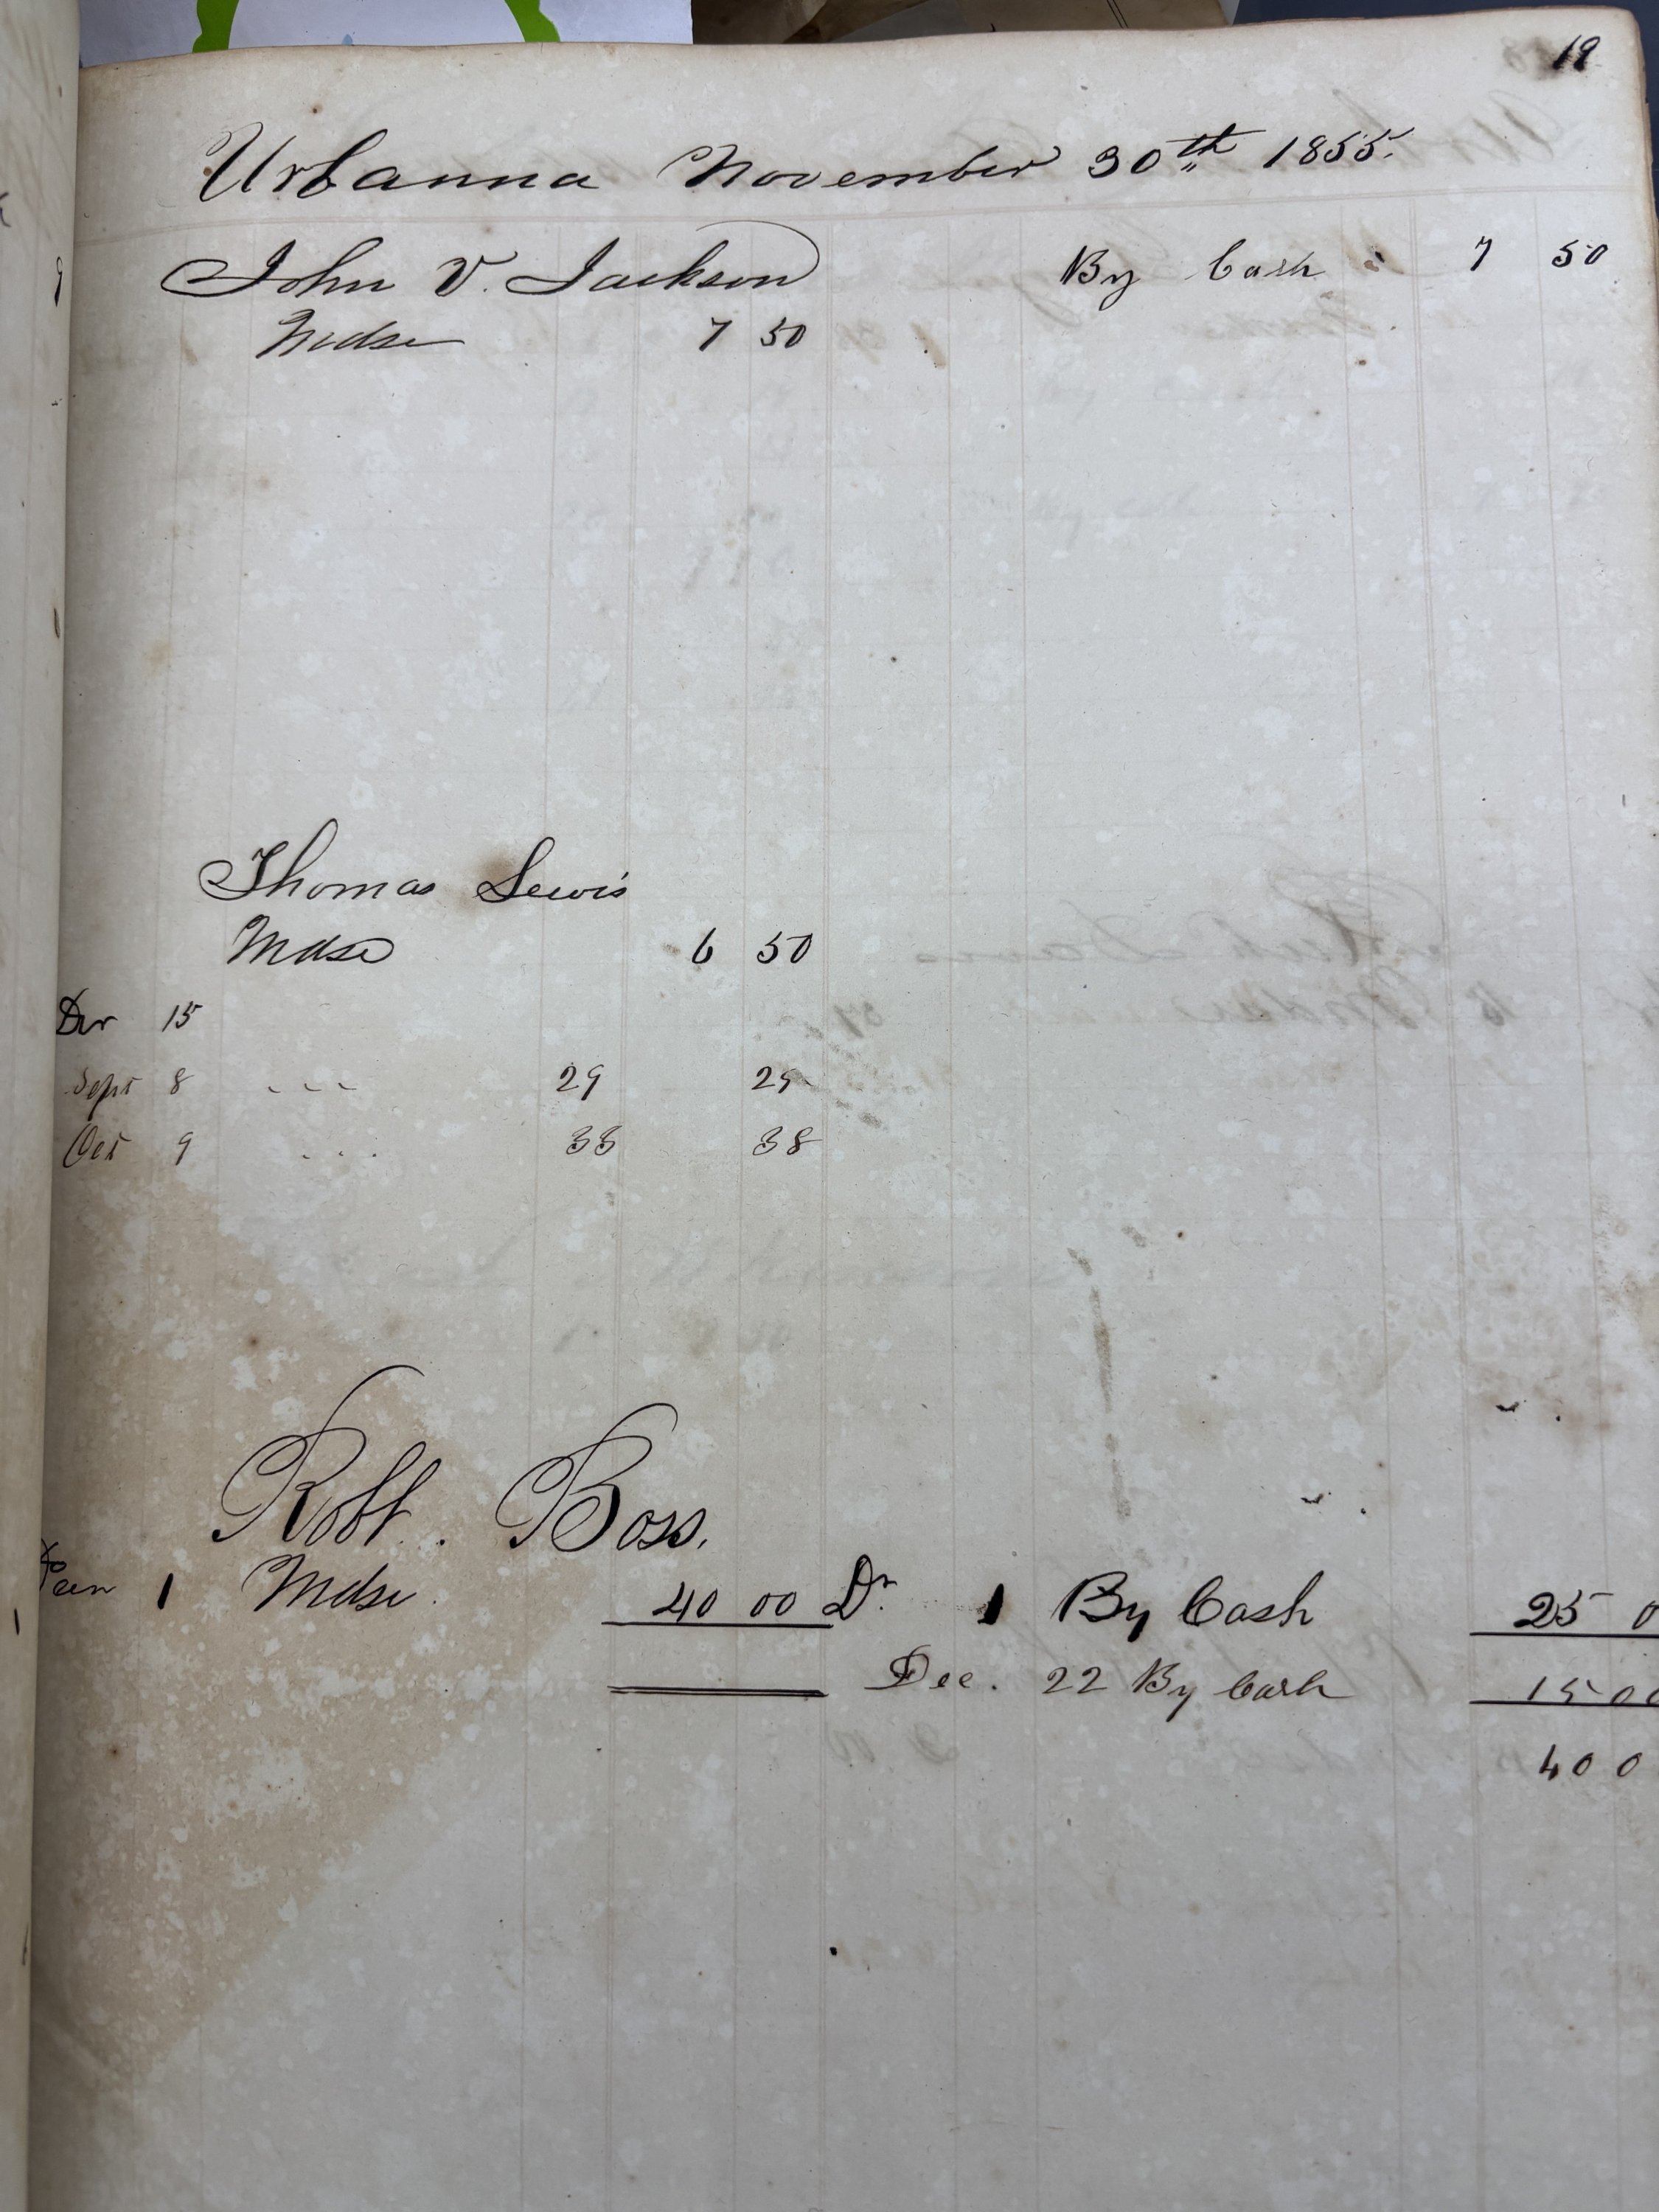 19
Urbanna November 30th 1855.
John V. Jackson By Cash 7 50
Mdse 7 50
Thomas Lewis
Mdse 6 50
15
Sept 8 - - - 29 29
Oct 9 . . . 33 38
Robt. Boss.
1 Mdse. 40 00 Dr. 1 By Cash 25 0
Dec. 22 By Cash 15 00
40 0